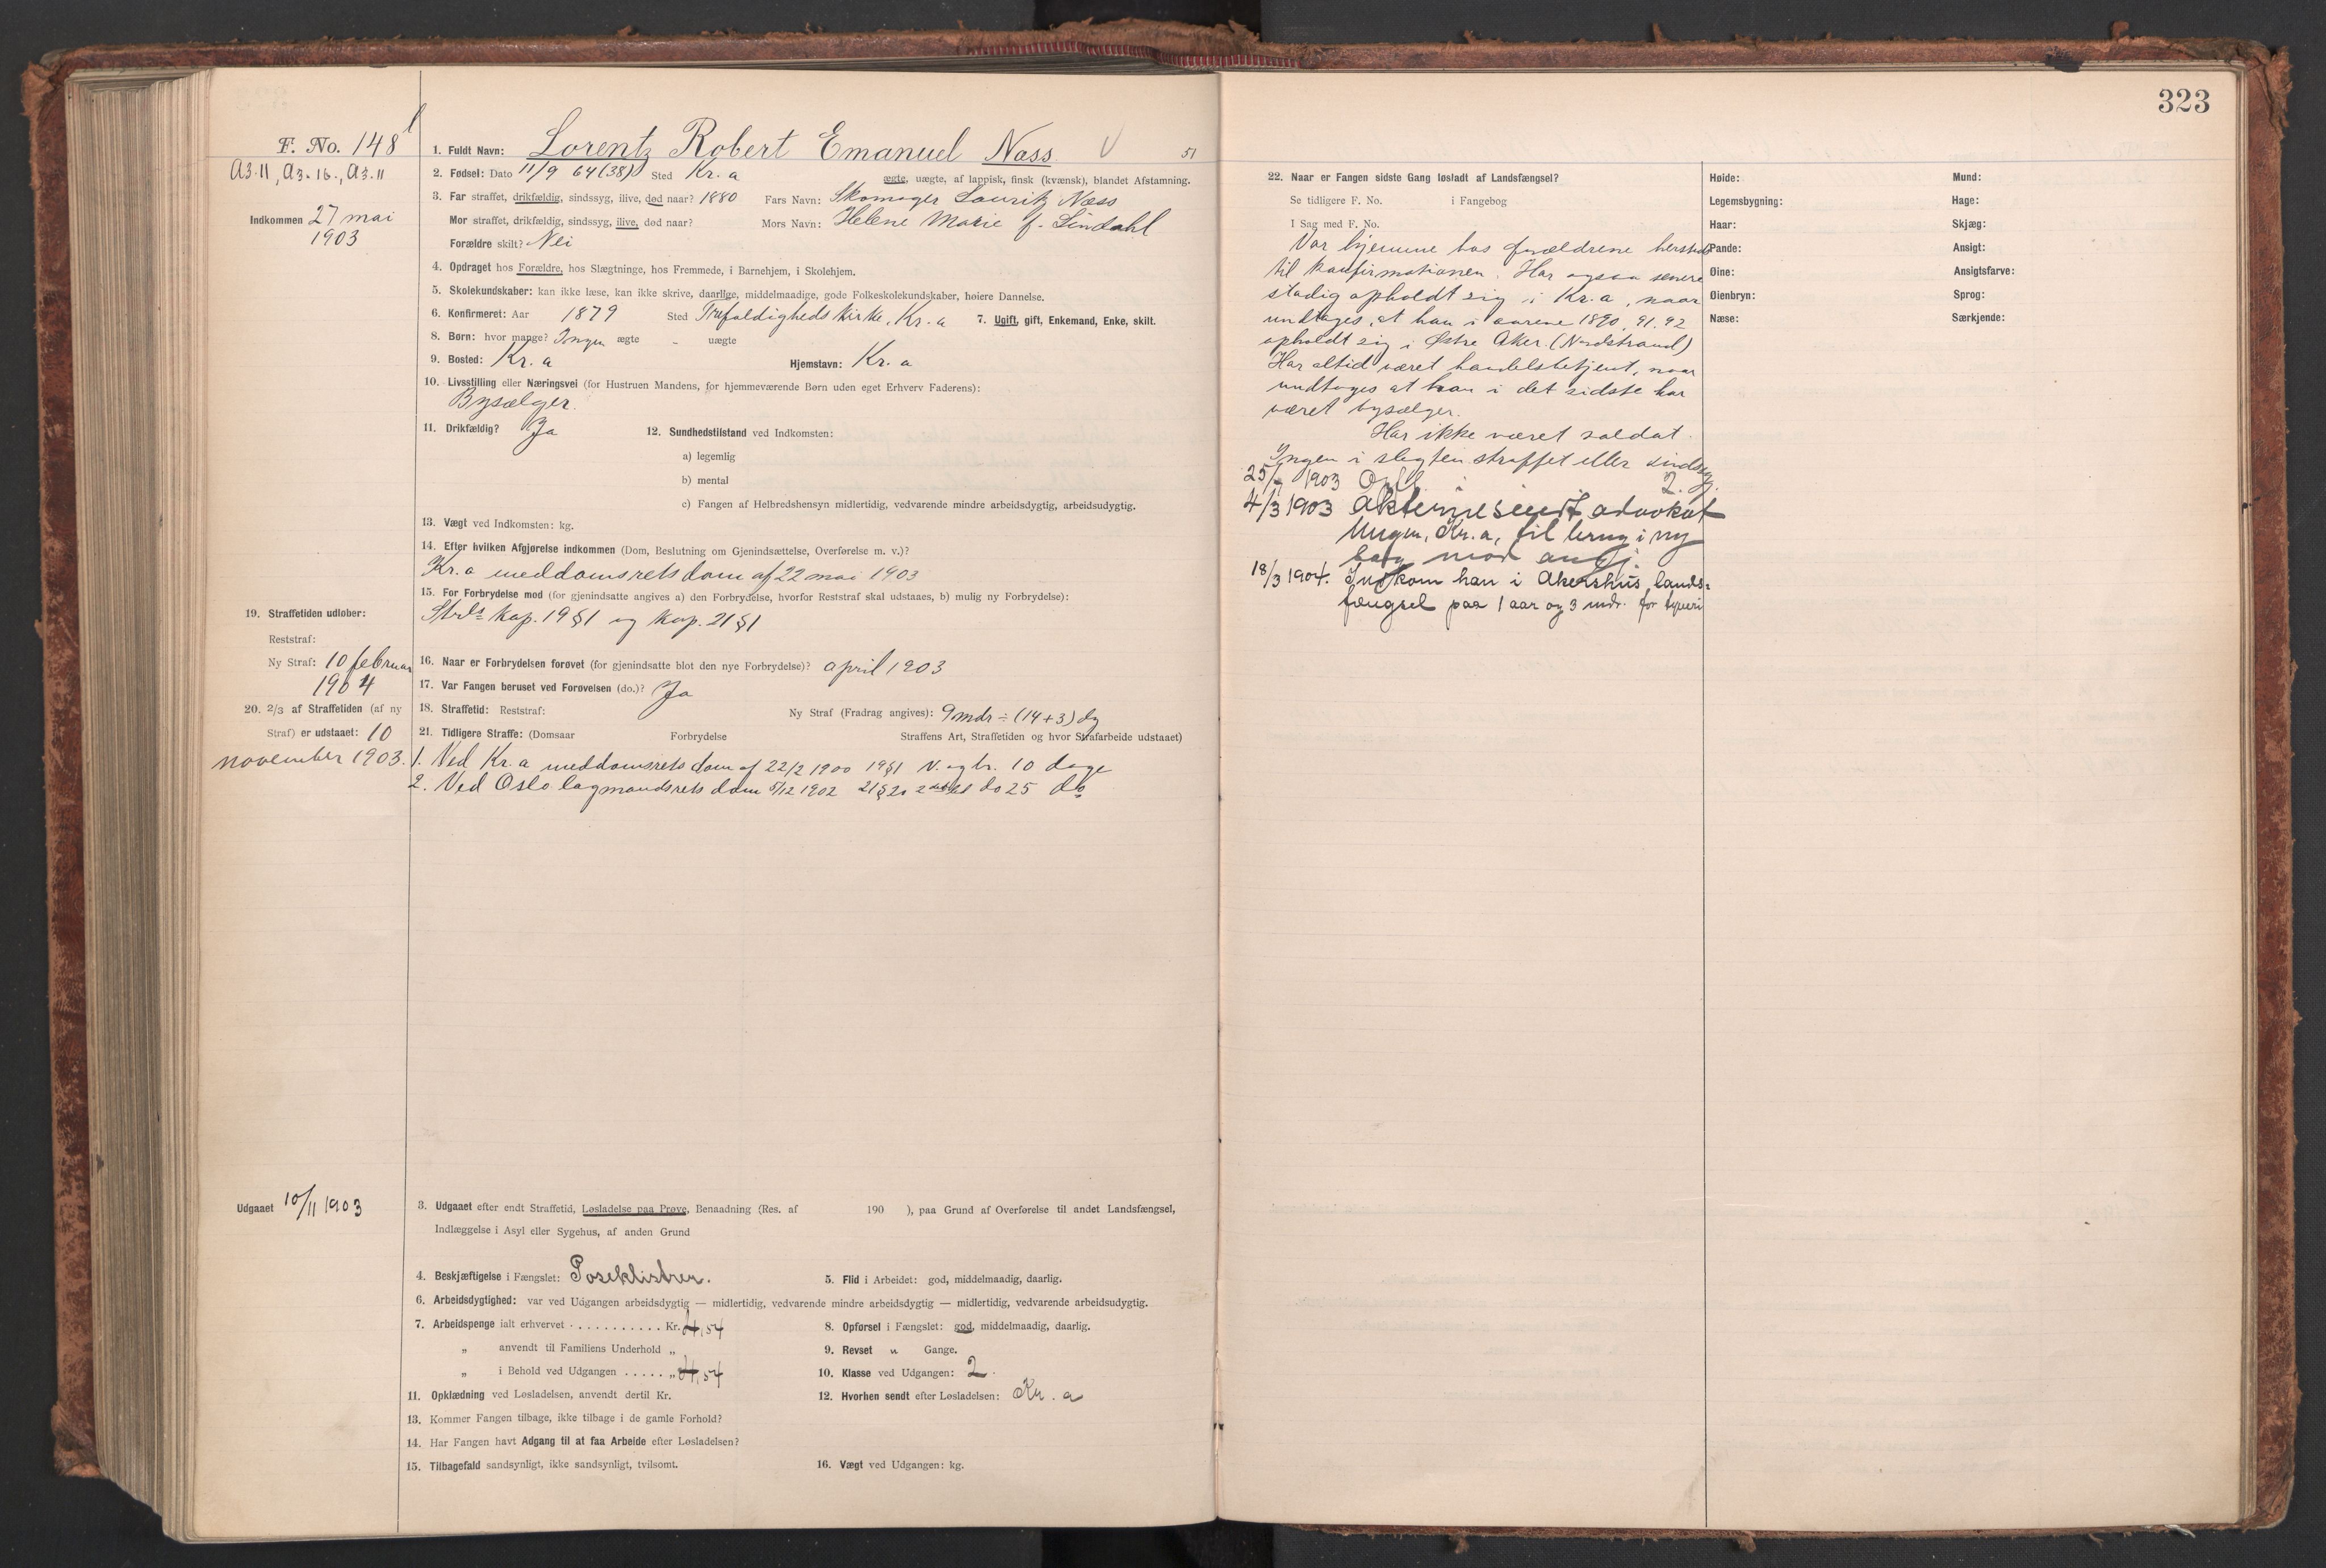 323
F. No. 148
A3.11, A3.16., A3.11
Indkommen 27 mai
1903
1. Fuldt Navn: Lorentz Robert Emanuel Næss. 51
2. Fødsel: Dato 11/9 64 (38) Sted Kr.a ægte, uægte, af lappisk, finsk (kvænsk), blandet Afstamning.
3. Far straffet, drikfældig, sindssyg, ilive, død naar? 1880 Fars Navn: Skomager Lauritz Næss
Mor straffet, drikfældig, sindssyg, ilive, død naar? Mors Navn: Helene Marie f. Lindahl
Forældre skilt? Nei
4. Opdraget hos Forældre, hos Slægtninge, hos Fremmede, i Barnehjem, i Skolehjem.
5. Skolekundskaber: kan ikke læse, kan ikke skrive, daarlige, middelmaadige, gode Folkeskolekundskaber, høiere Dannelse.
6. Konfirmeret: Aar 1879 Sted Trefoldigheds kirke, Kr.a 7. Ugift, gift, Enkemand, Enke, skilt.
8. Børn: hvor mange? Ingen ægte " uægte
9. Bosted: Kr.a Hjemstavn: Kr.a
10. Livsstilling eller Næringsvei (for Hustruen Mandens, for hjemmeværende Børn uden eget Erhverv Faderens):
Bysælger.
11. Drikfældig? Ja 12. Sundhedstilstand ved Indkomsten:
a) legemlig
b) mental
c) Fangen af Helbredshensyn midlertidig, vedvarende mindre arbeidsdygtig, arbeidsudygtig.
13. Vægt ved Indkomsten: kg.
14. Efter hvilken Afgjørelse indkommen (Dom, Beslutning om Gjenindsættelse, Overførelse m. v.)?
Kr.a meddomsrets dom af 22 mai 1903
15. For Forbrydelse mod (for gjenindsatte angives a) den Forbrydelse, hvorfor Reststraf skal udstaaes, b) mulig ny Forbrydelse):
Strls kap. 19 § 1 og kap. 21 § 1
19. Straffetiden udløber:
Reststraf:
Ny Straf: 10 februar
1904
16. Naar er Forbrydelsen forøvet (for gjenindsatte blot den nye Forbrydelse)? april 1903
17. Var Fangen beruset ved Forøvelsen (do.)? Ja
20. 2/3 af Straffetiden (af ny
Straf) er udstaaet: 10
november 1903.
18. Straffetid: Reststraf: Ny Straf (Fradrag angives): 9 mdr ÷ (14+3) dg
21. Tidligere Straffe: (Domsaar Forbrydelse Straffens Art, Straffetiden og hvor Strafarbeide udstaaet)
1. Ved Kr.a meddomsrets dom af 22/2 1900 19§1 V. og br. 10 dage
2. Ved Oslo lagmandsrets dom 5/12 1902 21§20 do 25 do
Udgaaet 10/11 1903
3. Udgaaet efter endt Straffetid, Løsladelse paa Prøve, Benaadning (Res. af 190 ), paa Grund af Overførelse til andet Landsfængsel,
Indlæggelse i Asyl eller Sygehus, af anden Grund
4. Beskjæftigelse i Fængslet: Poseklistrer. 5. Flid i Arbeidet: god, middelmaadig, daarlig.
6. Arbeidsdygtighed: var ved Udgangen arbeidsdygtig — midlertidig, vedvarende mindre arbeidsdygtig — midlertidig, vedvarende arbeidsudygtig.
7. Arbeidspenge ialt erhvervet . . . . . . . . . . . Kr. 4,54 8. Opførsel i Fængslet: god, middelmaadig, daarlig.
„ anvendt til Familiens Underhold „ 9. Revset " Gange.
„ i Behold ved Udgangen . . . . . „ 4,54 10. Klasse ved Udgangen: 2.
11. Opklædning ved Løsladelsen, anvendt dertil Kr. 12. Hvorhen sendt efter Løsladelsen: Kr.a
13. Kommer Fangen tilbage, ikke tilbage i de gamle Forhold?
14. Har Fangen havt Adgang til at faa Arbeide efter Løsladelsen?
15. Tilbagefald sandsynligt, ikke sandsynligt, tvilsomt. 16. Vægt ved Udgangen: kg.
22. Naar er Fangen sidste Gang løsladt af Landsfængsel?
Se tidligere F. No. i Fangebog
I Sag med F. No.
Var hjemme hos forældrene hersteds
til konfirmationen. Har ogsaa senere
stadig opholdt sig i Kr.a, naar
undtages, at han i aarene 1890, 91, 92
opholdt sig i Østre Aker. (Nordstrand)
Har altid været handelsbetjent, naar
undtages at han i det sidste har
været bysælger.
Har ikke været soldat.
Ingen i slegten straffet eller sindssyg.
1903 Opfl. 2.
4/3 1903 Akterne sendt advokat
Mugen, Kr.a, til brug i ny
sag mod
18/3 1904. Indkom han i Akershus lands-
fængsel paa 1 aar og 3 mdr. for tyveri
Høide: Mund:
Legemsbygning: Hage:
Haar: Skjæg:
Pande: Ansigt:
Øine: Ansigtsfarve:
Øienbryn: Sprog:
Næse: Særkjende: